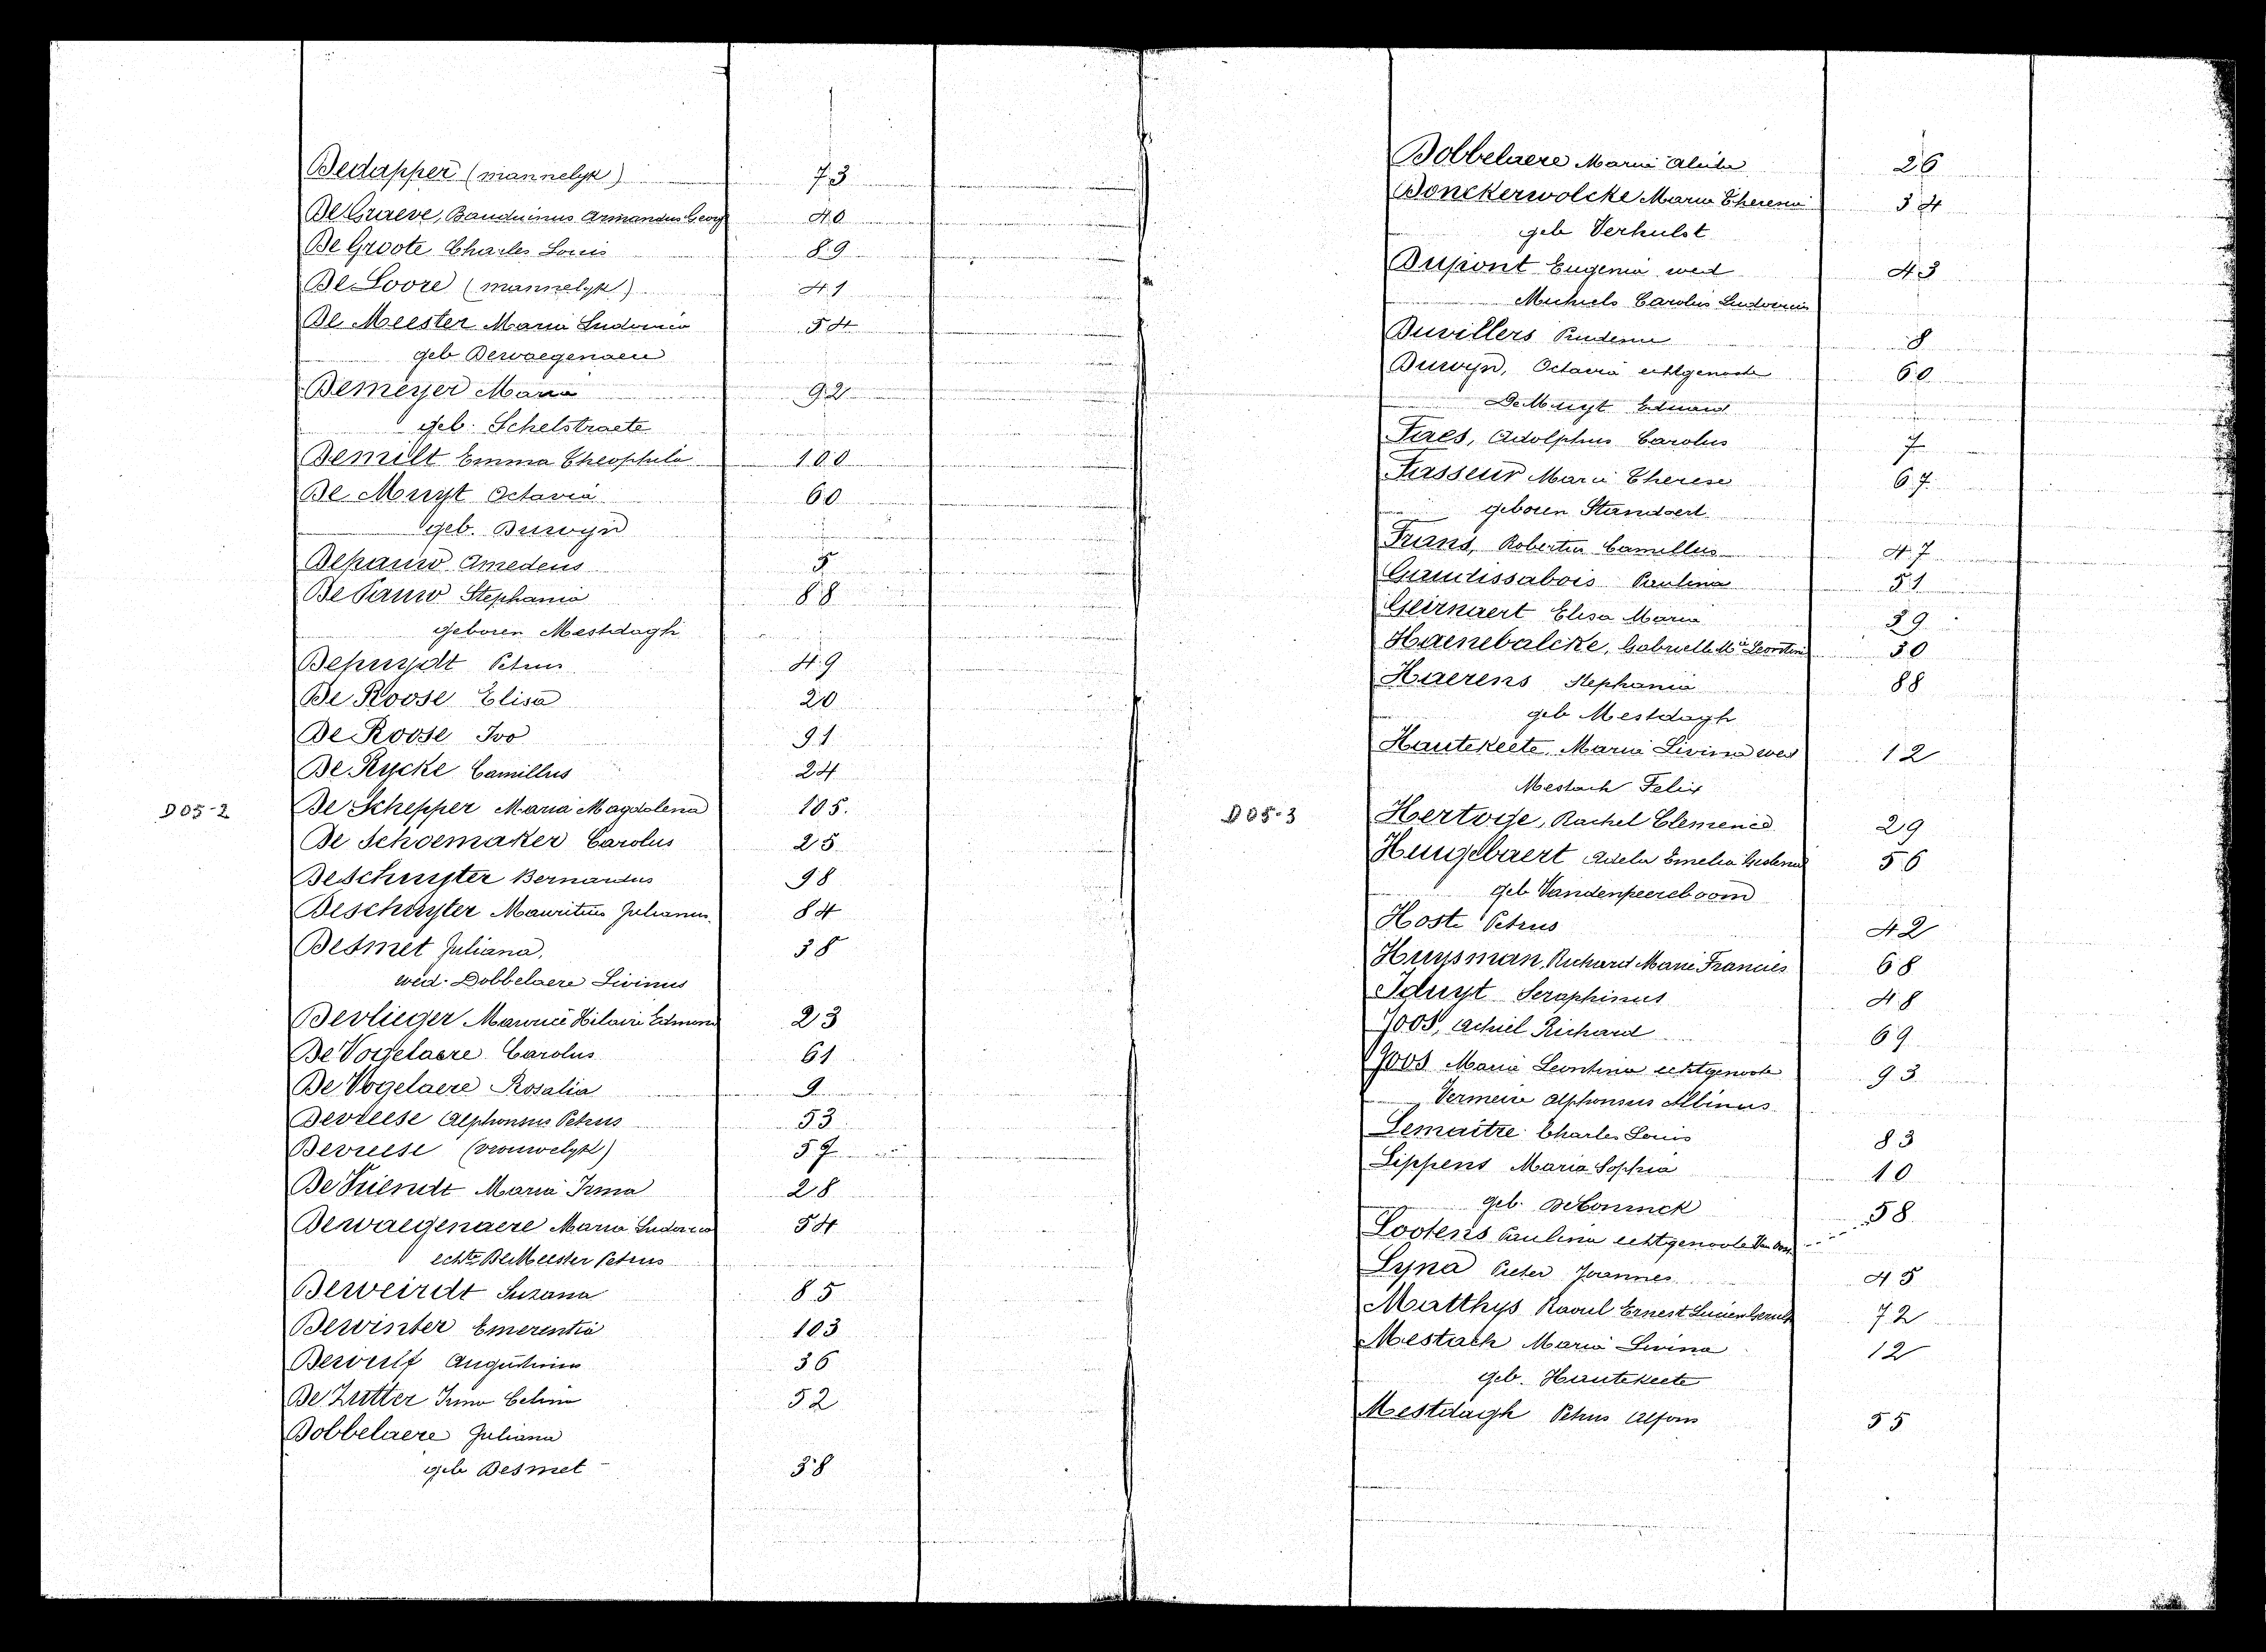 Dedapper (mannelyk) 73
De Graeve, Bauduinus Armandus Georg 40
De Groote Charles Louis 89
De Loore (mannelyk) 41
De Meester Maria Ludovica 54
geb Dewaegenaere
Demeyer Maria 92
geb. Schelstraete
Demilt Emma Theophila 100
De Muyt Octavia 60
geb. Duwyn
Depauw Amedeus 5
De Pauw Stephania 88
geboren Mestdagh
Depuydt Petrus 49
De Roose Elisa 20
De Roose Ivo 91
De Rycke Camillus 24
D05-2
De Schepper Maria Magdalena 105.
De Schoemaker Carolus 25
Deschuyter Bernardus 98
Deschuyter Mauritius Julianus 84
Desmet Juliana, 38
wed. Dobbelaere Livinus
Devlieger Maurice Hilaire Edmond 23
De Vogelaere Carolus 61
De Vogelaere Rosalia 9
Devreese Alphonsus Petrus 53
Devreese (vrouwelyk) 57
De Vriendt Maria Irma 28
Dewaegenaere Maria Ludovica 54
echte De Meester Petrus
Deweirdt Suzana 85
Dewinter Emerentia 103
Dewulf Augustinus 36
De Zutter Irma Celina 52
Dobbelaere Juliana
geb Desmet 38
Dobbelaere Maria 26
Donckerwolcke Maria Theresia 34
geb Verhulst
Dupont Eugenia wed 43
Michiels Carolus Ludovicus
Duvillers 8
Duwyn, Octavia echtgenoote 60
De Muyt Eduard
Fires, Adolphus Carolus 7
Fasseur Maria Therese 67
geboren Standaert
Frans, Robertus Camillus 47
Gaudissabois Paulina 51
Geirnaert Elisa Maria 39
Haenebalcke, Gabrielle Mia Leontine 30
Haerens Stephania 88
geb Mestdagh
Hautekeete, Maria Livina wed 12
Mestach Felix
D05-3
Hertoge, Rachel Clemence 29
Heugebaert Adela Emelia 56
geb Vandenpeereboom
Hoste Petrus 42
Huysman, Richard Marie Francies 68
Iduyt Seraphinus 48
Joos, Achiel Richard 69
Joos Maria Leontina echtgenoote 93
Vermeire Alphonsus Albinus
Lemaitre Charles Louis 83
Lippens Maria Sophia 10
geb. De Coninck
Lootens Paulina echtgenoote 58
Lyna Pieter Joannes 45
Matthys Raoul Ernest Lucien 72
Mestach Maria Livina 12
geb. Hautekeete
Mestdagh Petrus Alfons 55